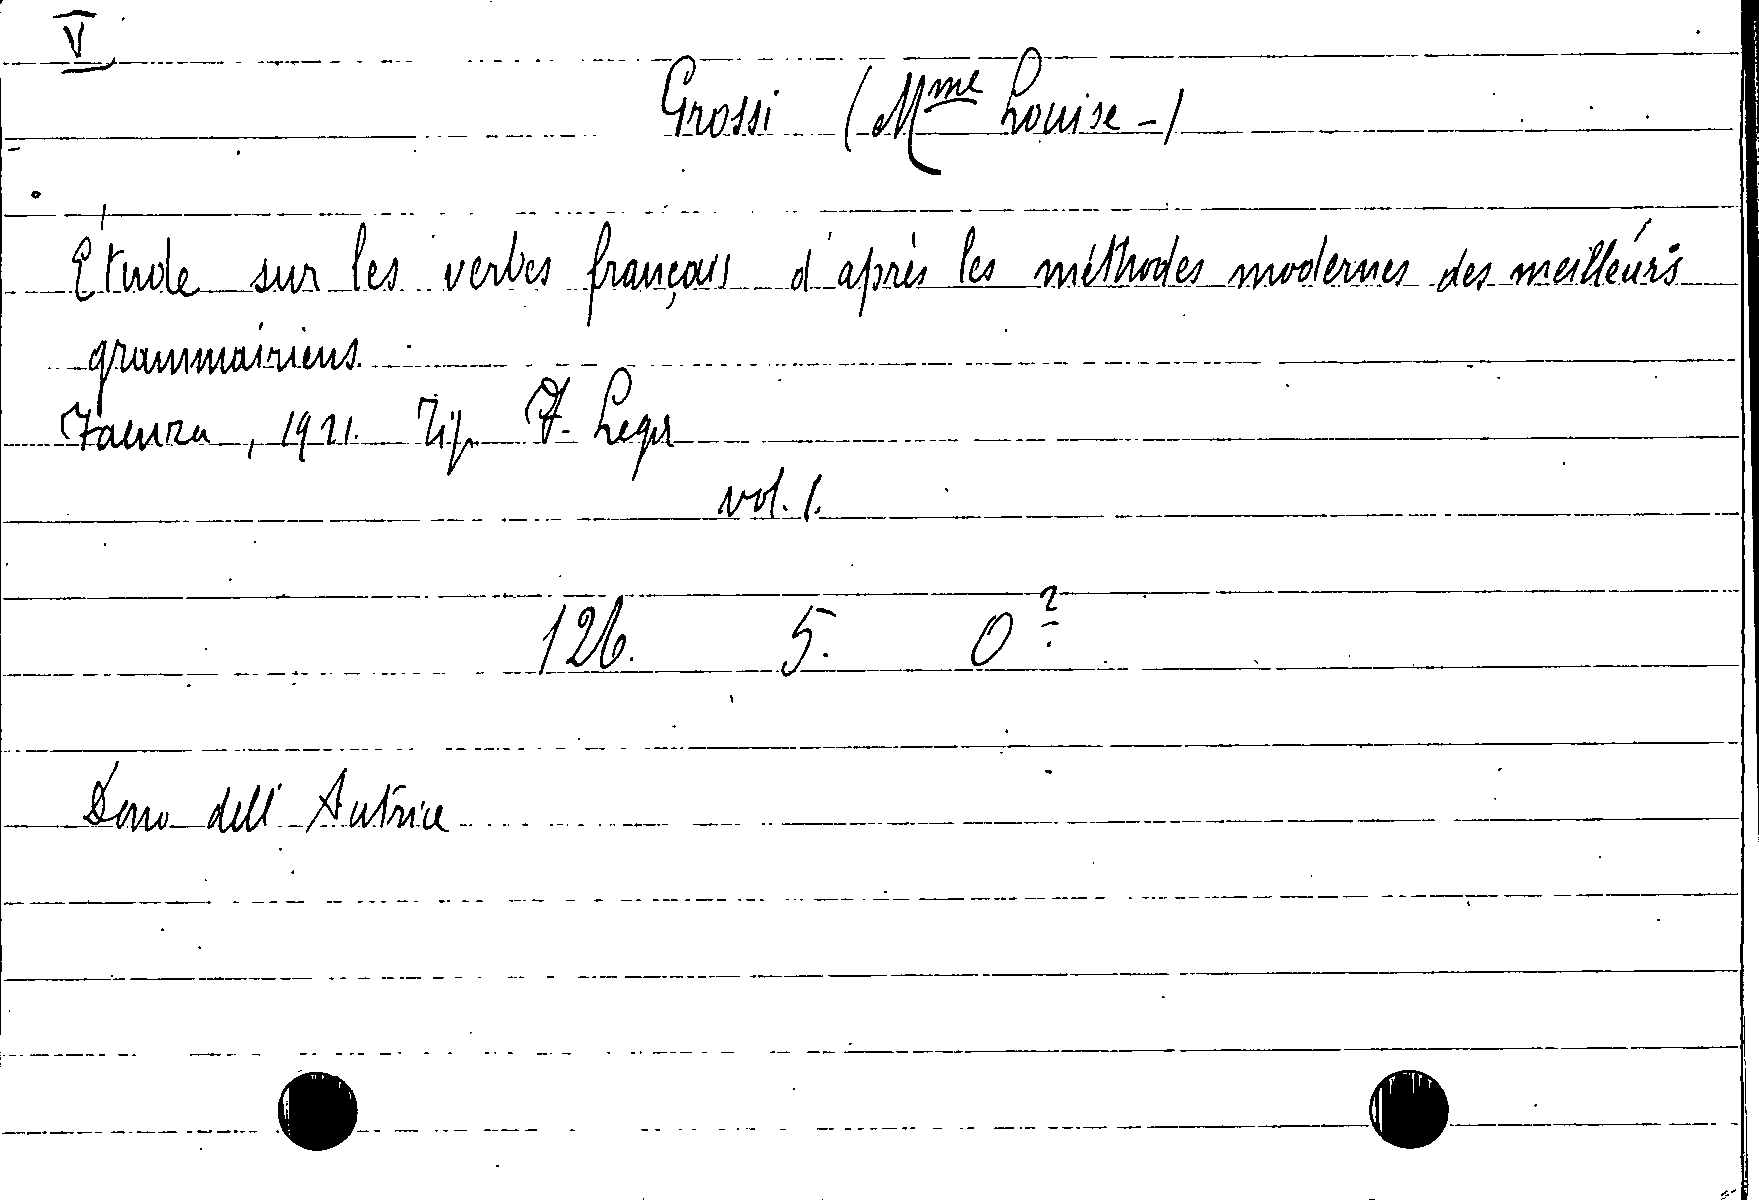 V
Grossi (Mme Louise -)
Étude sur les verbes français d'après les méthodes modernes des meilleurs
grammairiens.
Faenza, 1921. Tip. F. Lega
vol. 1.
126. 5. O ?
Dono dell'Autrice